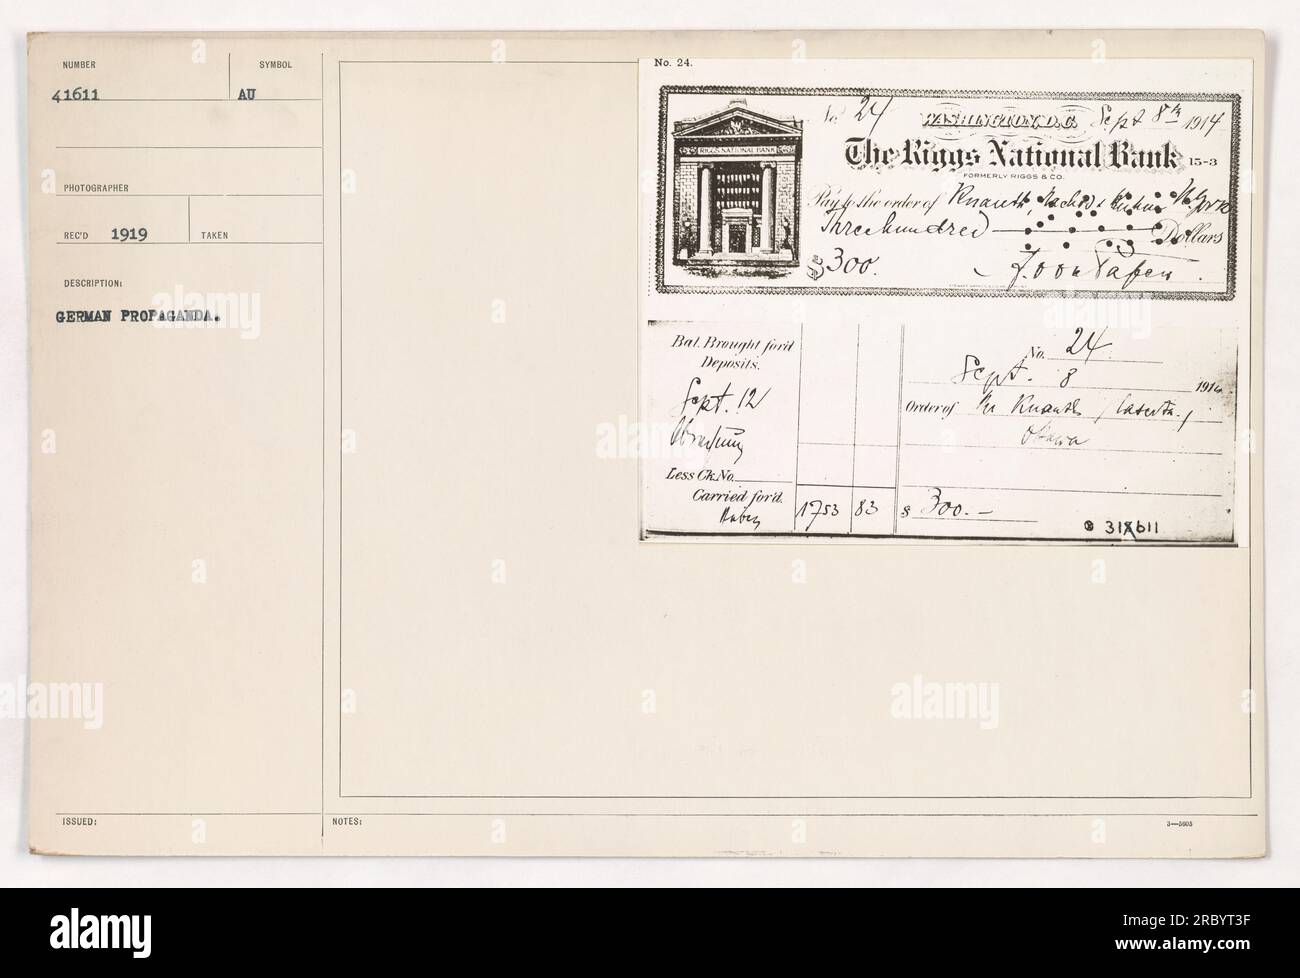 NUMBER
41611
SYMBOL
AU
PHOTOGRAPHER
REC'D 1919
TAKEN
DESCRIPTION:
GERMAN PROPAGANDA.
ISSUED:
NOTES:
3—5605
No. 24.
No. 24 WASHINGTON, D.C. Sept 8th 1914
RIGGS NATIONAL BANK
The Riggs National Bank 15-3
FORMERLY RIGGS & CO.
Pay to the order of Knauth, Nachod & Kuhne N. York
Three hundred Dollars
$300. F. von Papen
Bal. Brought for'd
Deposits.
Sept. 12
Less Ck. No.
Carried for'd. 1753 83
No. 24
Sept. 8 191
Order of Mr Knauth
Ottawa
$ 300.-
alamy
alamy
Image ID: 2RBYT3F
www.alamy.com